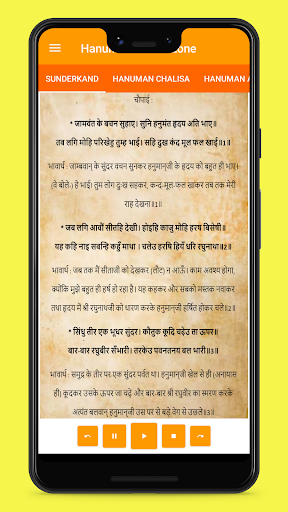 Hanuman
one
SUNDERKAND HANUMAN CHALISA HANUMAN A
चौपाई :
* जामवंत के बचन सुहाए। सुनि हनुमंत हृदय अति भाए॥
तब लगि मोहि परिखेहु तुम्ह भाई। सहि दुख कंद मूल फल खाई॥1॥
भावार्थ : जाम्बवान् के सुंदर वचन सुनकर हनुमान्जी के हृदय को बहुत ही भाए।
(वे बोले-) हे भाई! तुम लोग दुःख सहकर, कन्द-मूल-फल खाकर तब तक मेरी
राह देखना॥1॥
* जब लगि आवौं सीतहि देखी। होइहि काजु मोहि हरष बिसेषी॥
यह कहि नाइ सबन्हि कहुँ माथा । चलेउ हरषि हियँ धरि रघुनाथा॥2॥
भावार्थ : जब तक मैं सीताजी को देखकर (लौट) न आऊँ। काम अवश्य होगा,
क्योंकि मुझे बहुत ही हर्ष हो रहा है। यह कहकर और सबको मस्तक नवाकर
तथा हृदय में श्री रघुनाथजी को धारण करके हनुमान्जी हर्षित होकर चले॥2॥
* सिंधु तीर एक भूधर सुंदर। कौतुक कूदि चढ़ेउ ता ऊपर॥
बार-बार रघुबीर सँभारी। तरकेउ पवनतनय बल भारी॥3॥
भावार्थ : समुद्र के तीर पर एक सुंदर पर्वत था। हनुमान्जी खेल से ही (अनायास
ही) कूदकर उसके ऊपर जा चढ़े और बार-बार श्री रघुवीर का स्मरण करके
अत्यंत बलवान् हनुमान्जी उस पर से बड़े वेग से उछले॥3॥